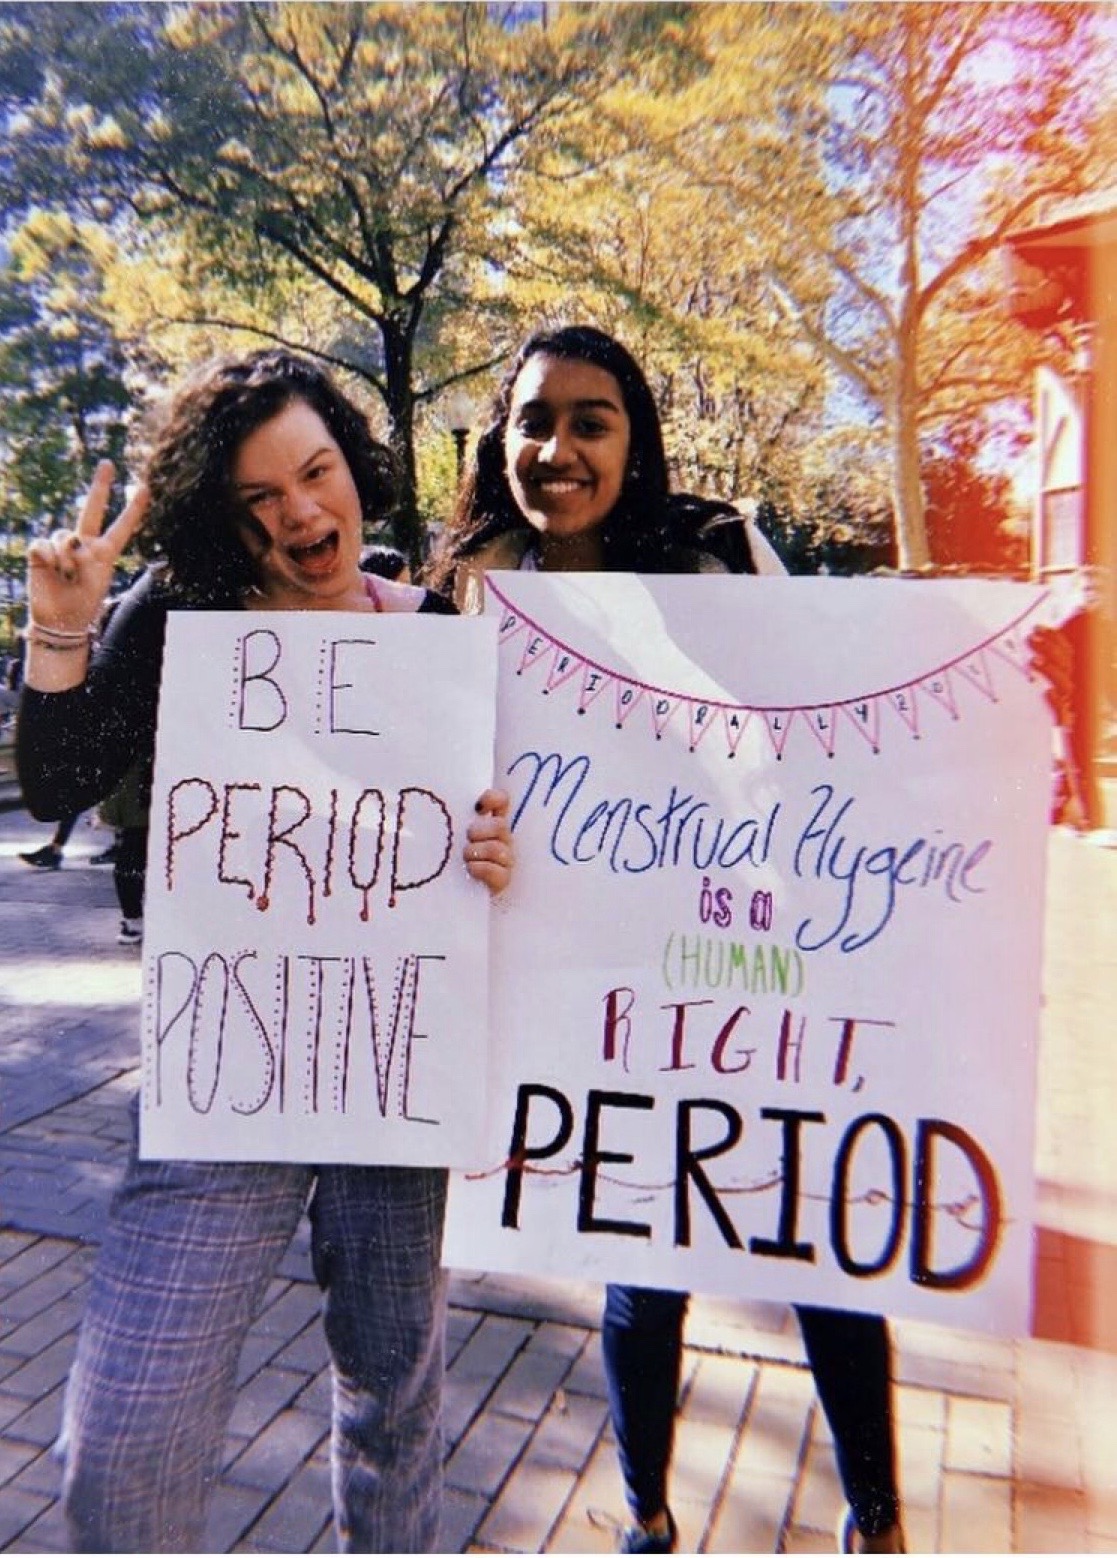 BE
PERIOD
POSITIVE
PERIODRALLY2019
Menstrual Hygeine
is a
(HUMAN)
RIGHT,
PERIOD